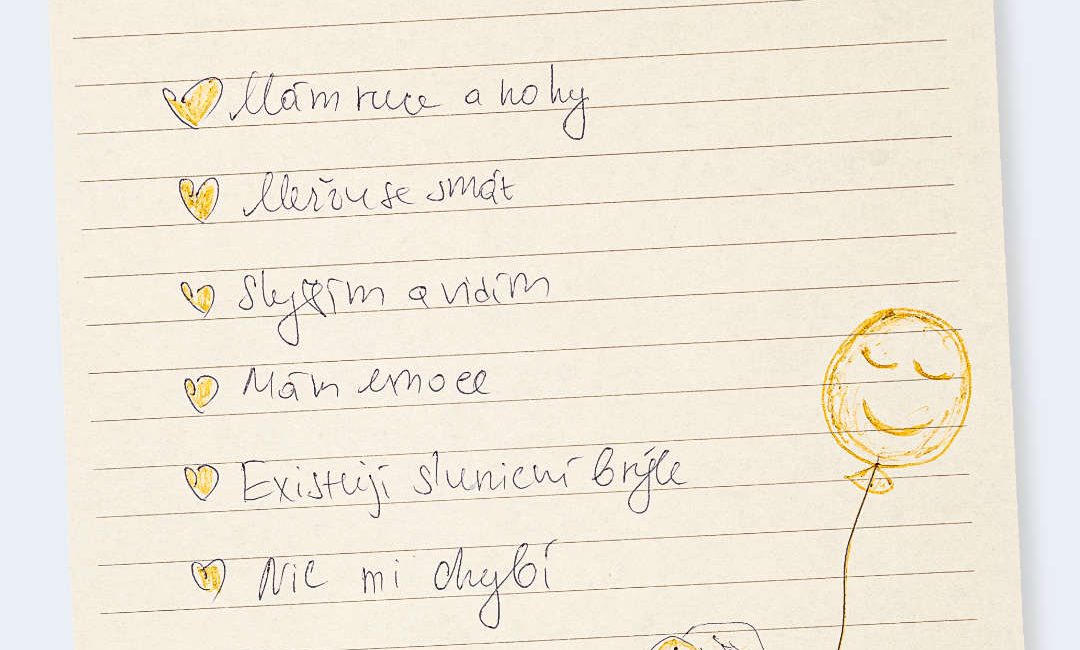 Mám ruce a nohy
Můžu se smát
Slyším a vidím
Mám emoce
Existují sluneční brýle
Nic mi chybí